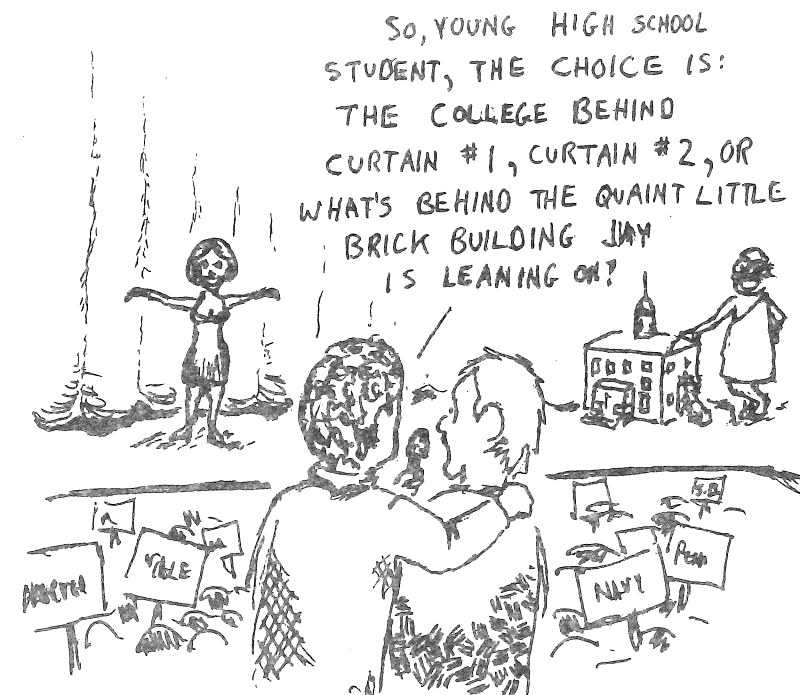 SO, YOUNG HIGH SCHOOL
STUDENT, THE CHOICE IS:
THE COLLEGE BEHIND
CURTAIN #1, CURTAIN #2, OR
WHAT'S BEHIND THE QUAINT LITTLE
BRICK BUILDING JAY
IS LEANING ON?
YALE
NAVY
PENN